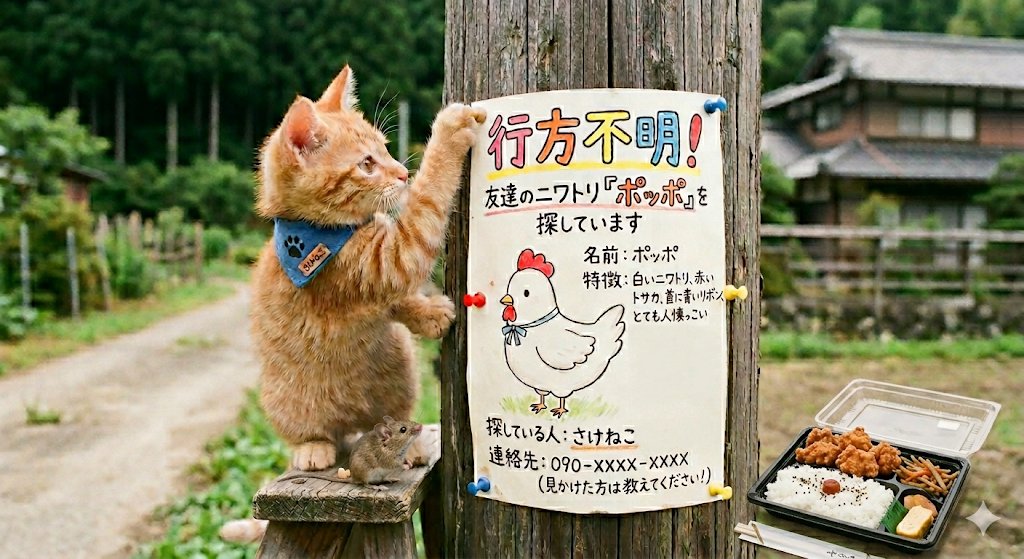 行方不明!
友達のニワトリ『ポッポ』を
探しています
名前：ポッポ
特徴：白いニワトリ、赤い
トサカ、首に青いリボン、
とても人懐っこい
探している人：さけねこ
連絡先：090-xxxx-xxxx
(見かけた方は教えてください!)